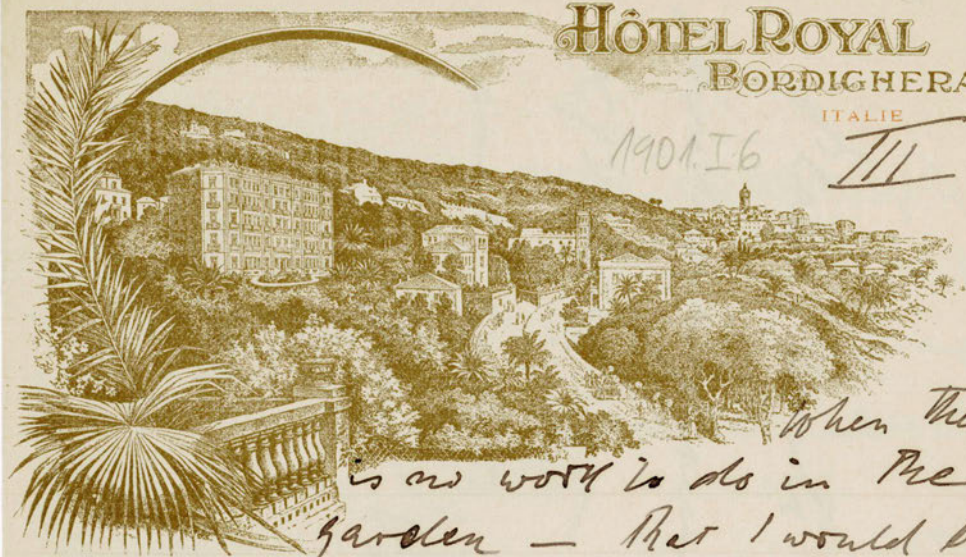 HÔTEL ROYAL
BORDIGHERA
ITALIE
1901.I.6
III
When the
is no work to do in the
garden — that I would